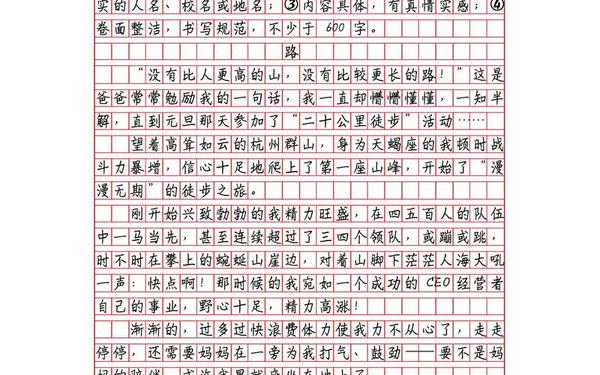 实的人名、校名或地名；③内容具体，有真情实感；④
卷面整洁，书写规范，不少于600字。
路
“没有比人更高的山，没有比较更长的路！”这是
爸爸常常勉励我的一句话，我一直却懵懵懂懂，一知半
解，直到元旦那天参加了“二十公里徒步”活动……
望着高耸如云的杭州群山，身为天蝎座的我顿时战
斗力暴增，信心十足地爬上了第一座山峰，开始了“漫
漫无期”的徒步之旅。
刚开始兴致勃勃的我精力旺盛，在四五百人的队伍
中一马当先，甚至连续超过了三四个领队，或蹦或跳，
时不时在攀上的蜿蜒山崖边，对着山脚下茫茫人海大吼
一声：快点啊！那时候的我宛如一个成功的CEO经营者
自己的事业，野心十足，精力高涨！
渐渐的，过多过快浪费体力使我力不从心了，走走
停停，还需要妈妈在一旁为我打气、鼓劲——要不是妈
妈的陪伴，或许我早就瘫坐在地上了